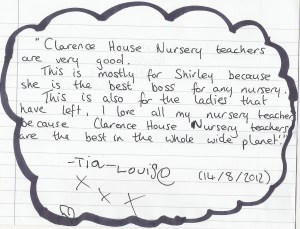 "Clarence House Nursery teachers
are very good.
This is mostly for Shirley because
she is the best boss for any nursery.
This is also for the ladies that
have left. I love all my nursery teacher
because Clarence House Nursery teachers
are the best in the whole wide planet"
-Tia-Louise (14/8/2012)
x x x